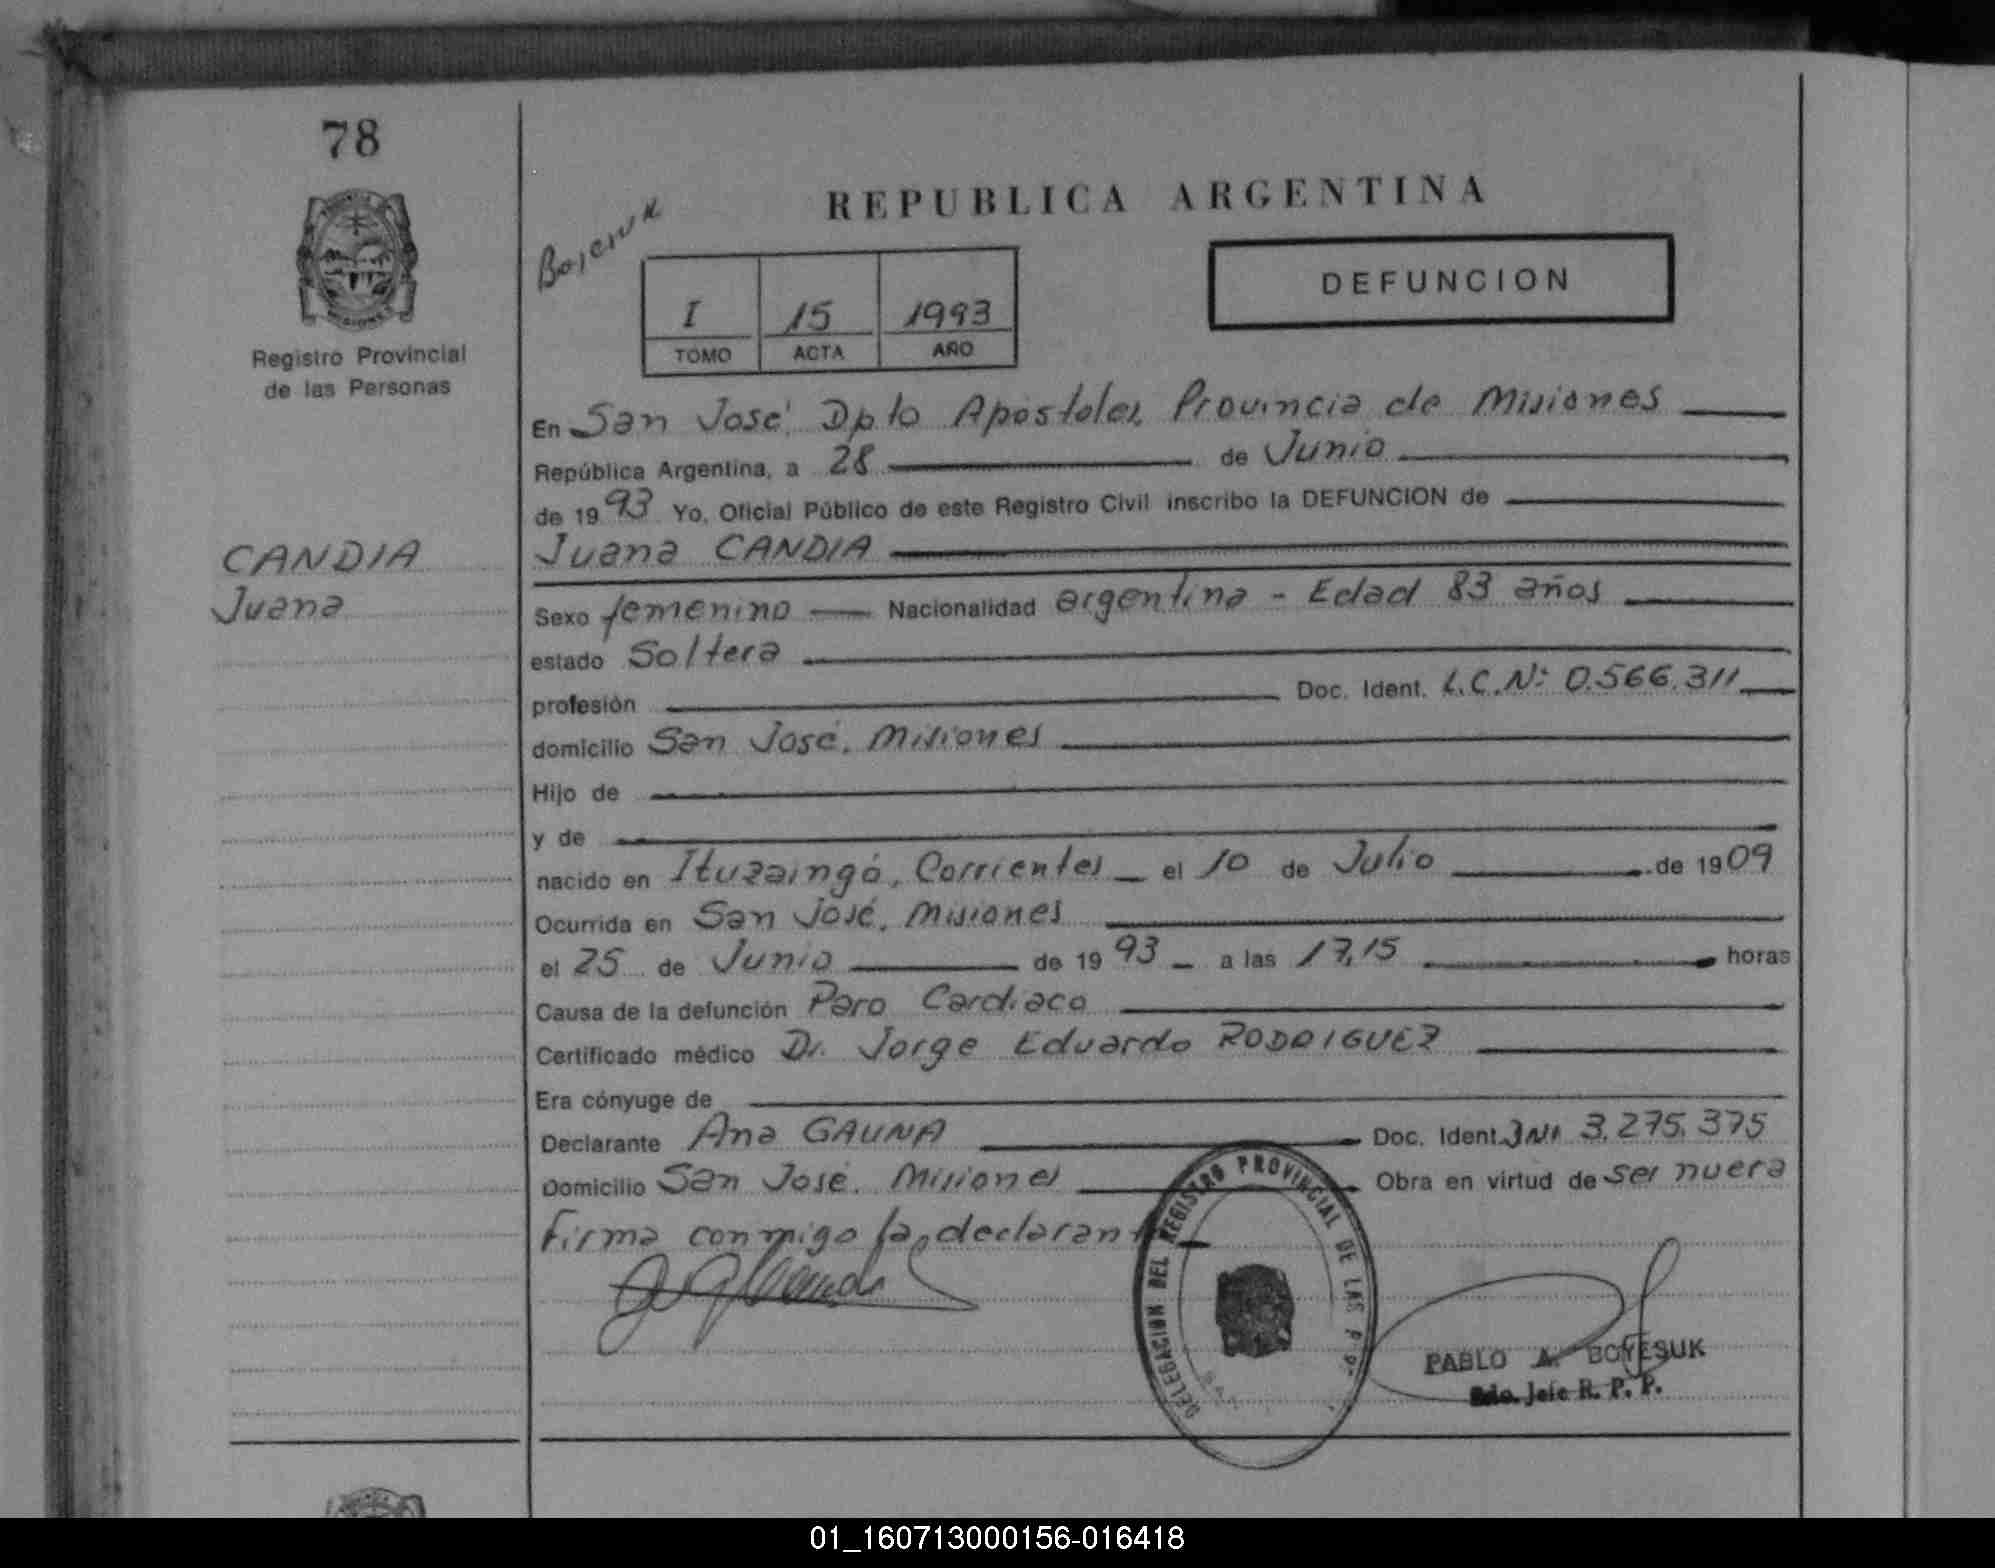 78
REPUBLICA ARGENTINA
DEFUNCION
I 15 1993
TOMO ACTA AÑO
MISIONES
Registro Provincial
de las Personas
CANDIA
Juana
En San José, Dpto Apóstoles, Provincia de Misiones
República Argentina, a 28 de Junio
de 1993 Yo, Oficial Público de este Registro Civil inscribo la DEFUNCION de
Juana CANDIA
Sexo femenino Nacionalidad argentina - Edad 83 años
estado Soltera
profesión Doc. Ident. L.C.Nº 0.566.311
domicilio San José, Misiones
Hijo de
y de
nacido en Ituzaingó, Corrientes el 10 de Julio de 1909
Ocurrida en San José, Misiones
el 25 de Junio de 1993 a las 17,15 horas
Causa de la defunción Paro Cardiaco
Certificado médico Dr. Jorge Eduardo RODRIGUEZ
Era cónyuge de
Declarante Ana GAUNA Doc. Ident. DNI 3.275.375
Domicilio San José, Misiones Obra en virtud de ser nuera
Firma conmigo la declarante
DELEGACION DEL REGISTRO PROVINCIAL DE LAS P P.
PABLO A. BOYESUK
Jefe R. P. P.
01_160713000156-016418